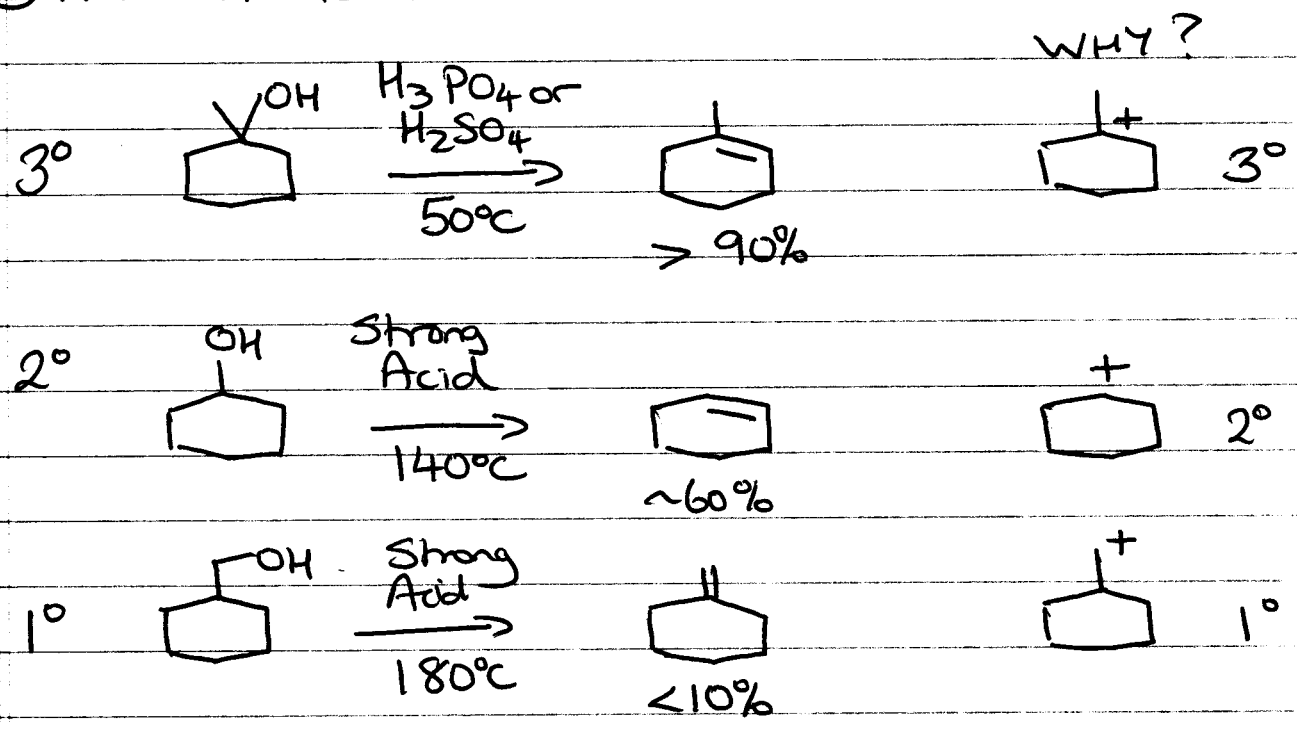 WHY?
OH H3PO4 or
H2SO4
+
3° 3°
50°C
> 90%
OH Strong
2° Acid +
2°
140°C
~60%
OH Strong +
Acid
1° 1°
180°C
<10%